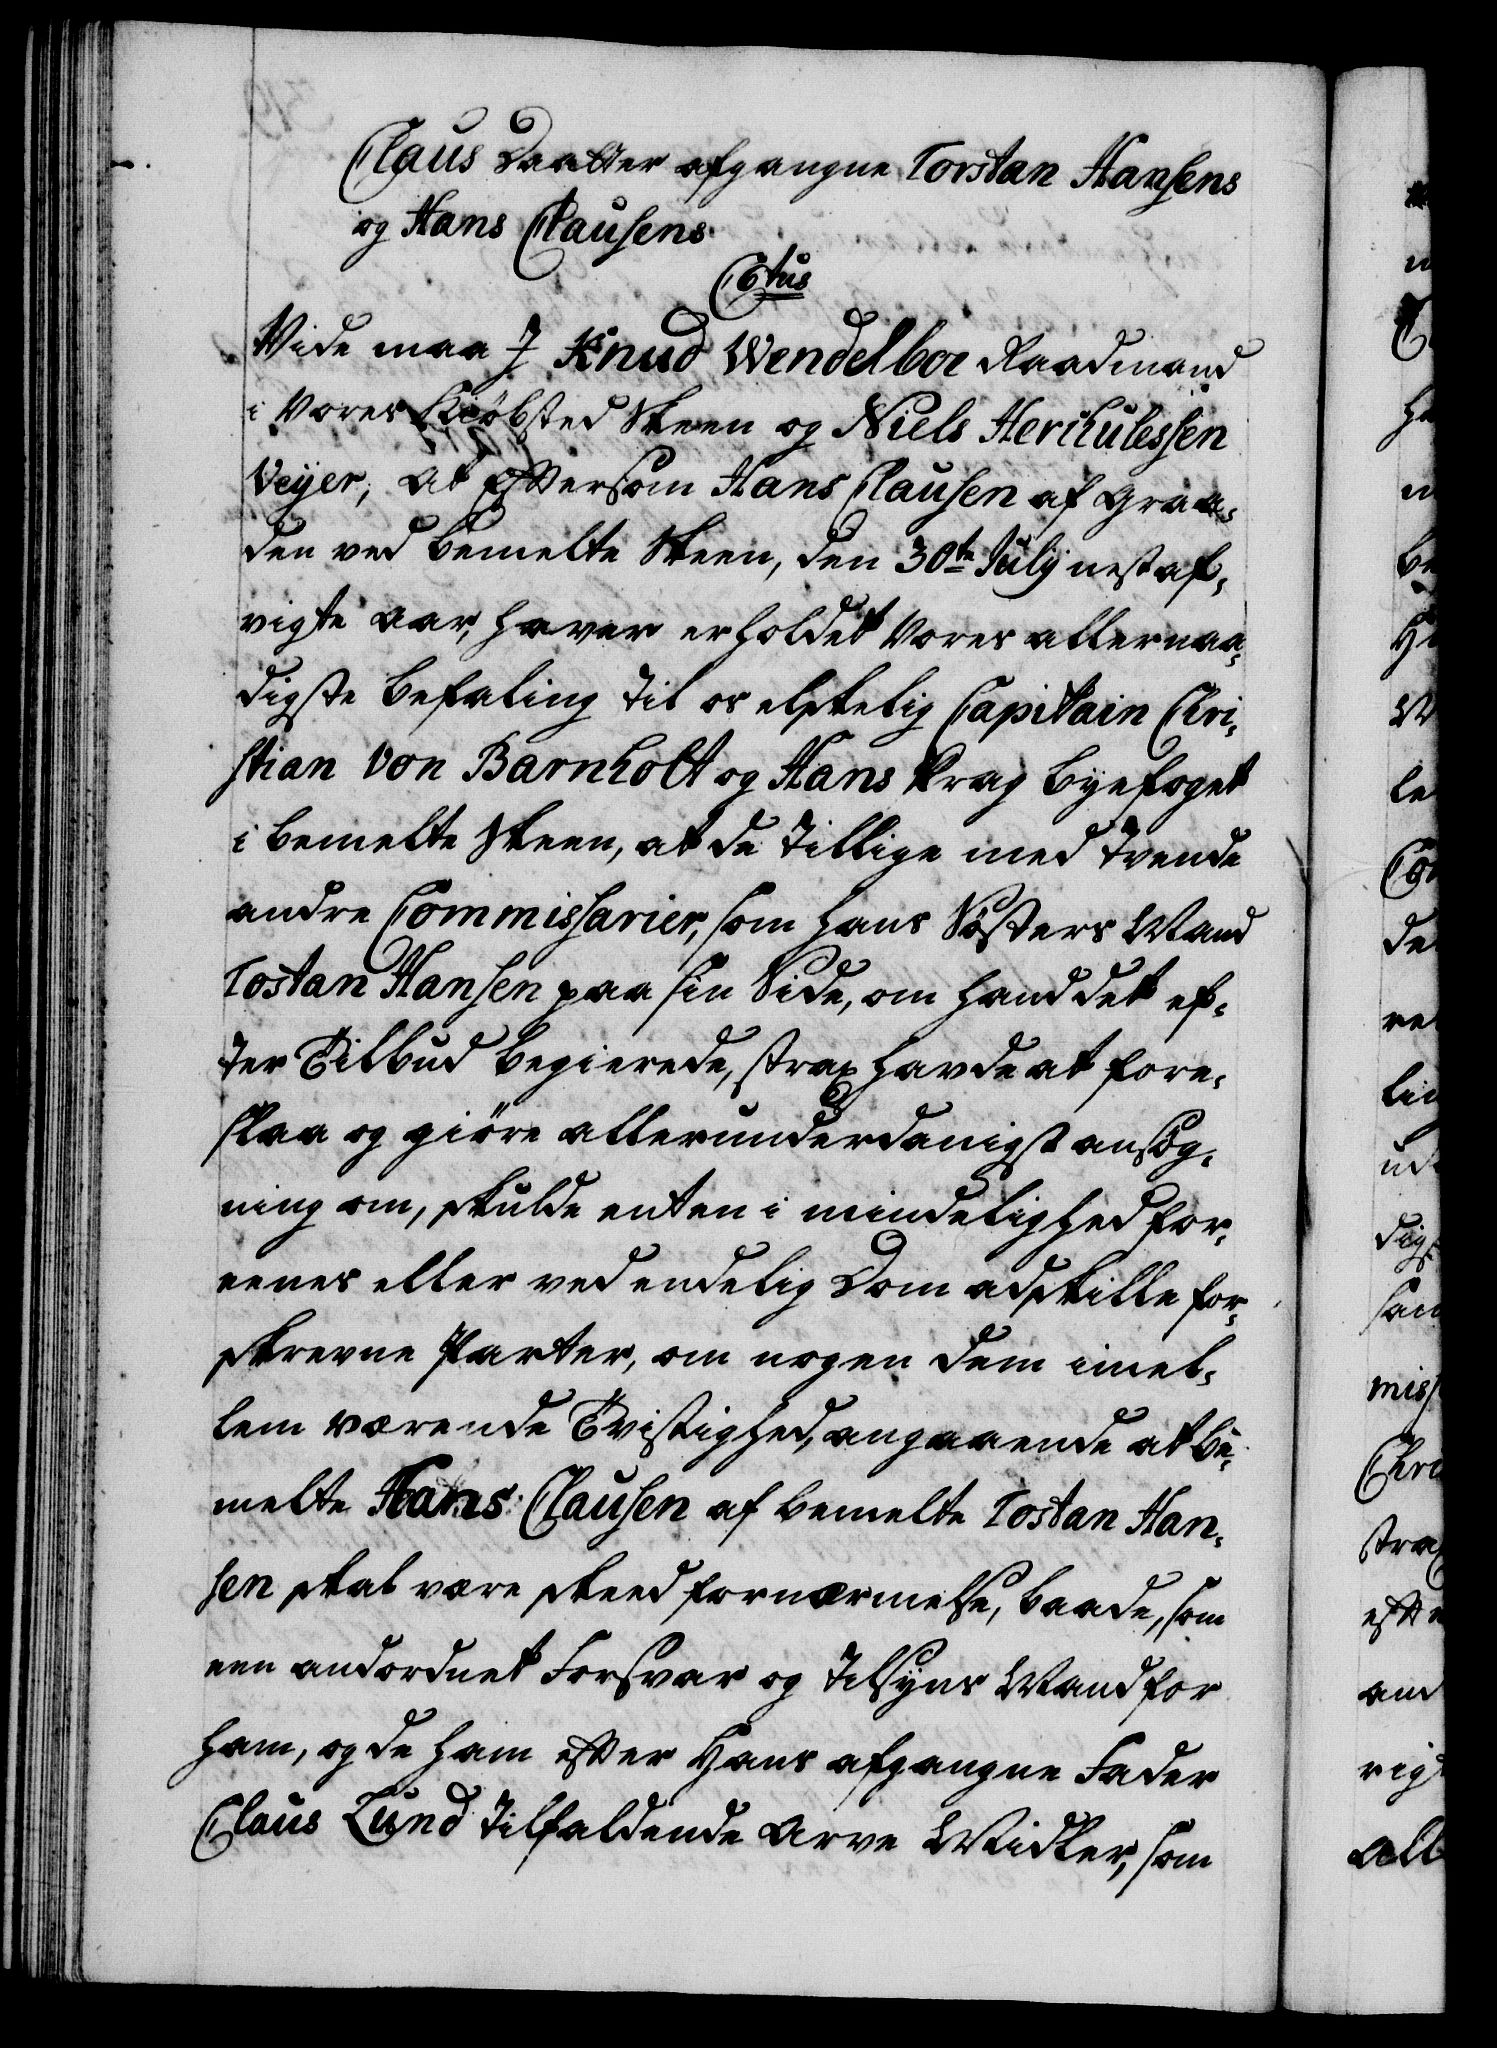 Claus Daatter afgangne Torstan Hansens
og Hans Clausens.
C6tus
Vide maa I Knud Wendelboe Raadmand
i Vores Kiöbsted Skeen og Niels Herculessen
Veyer, at Eftersom Hans Clausen af Graa-
den ved bemelte Skeen, den 30te July nest af-
vigte Aar, haver erholdet Vores allernaa-
digste Befaling til os elskelig Capitain Chri-
stian von Barnholt og Hans Krag Byefoget
i bemelte Skeen, at de tillige med tvende
andre Commissarier, som hans Sösters Mand
Tostan Hansen paa sin Side, om hand det ef-
ter Tilbud begierede, strax havde at fore-
slaa og giöre allerunderdanigst ansög-
ning om, skulde enten i mindelighed for-
eenes eller ved endelig Dom adskille for-
skrevne Parter, om nogen dem imel-
lem værende Tvistighed, angaaende at be-
melte Hans Clausen af bemelte Tostan Han-
sen skal være skeed fornærmelse, baade, som
een andordnet Forsvar og tilsyns Mand for
ham, og de ham efter Hans afgangne Fader
Claus Lund tilfaldende Arve Midler, som